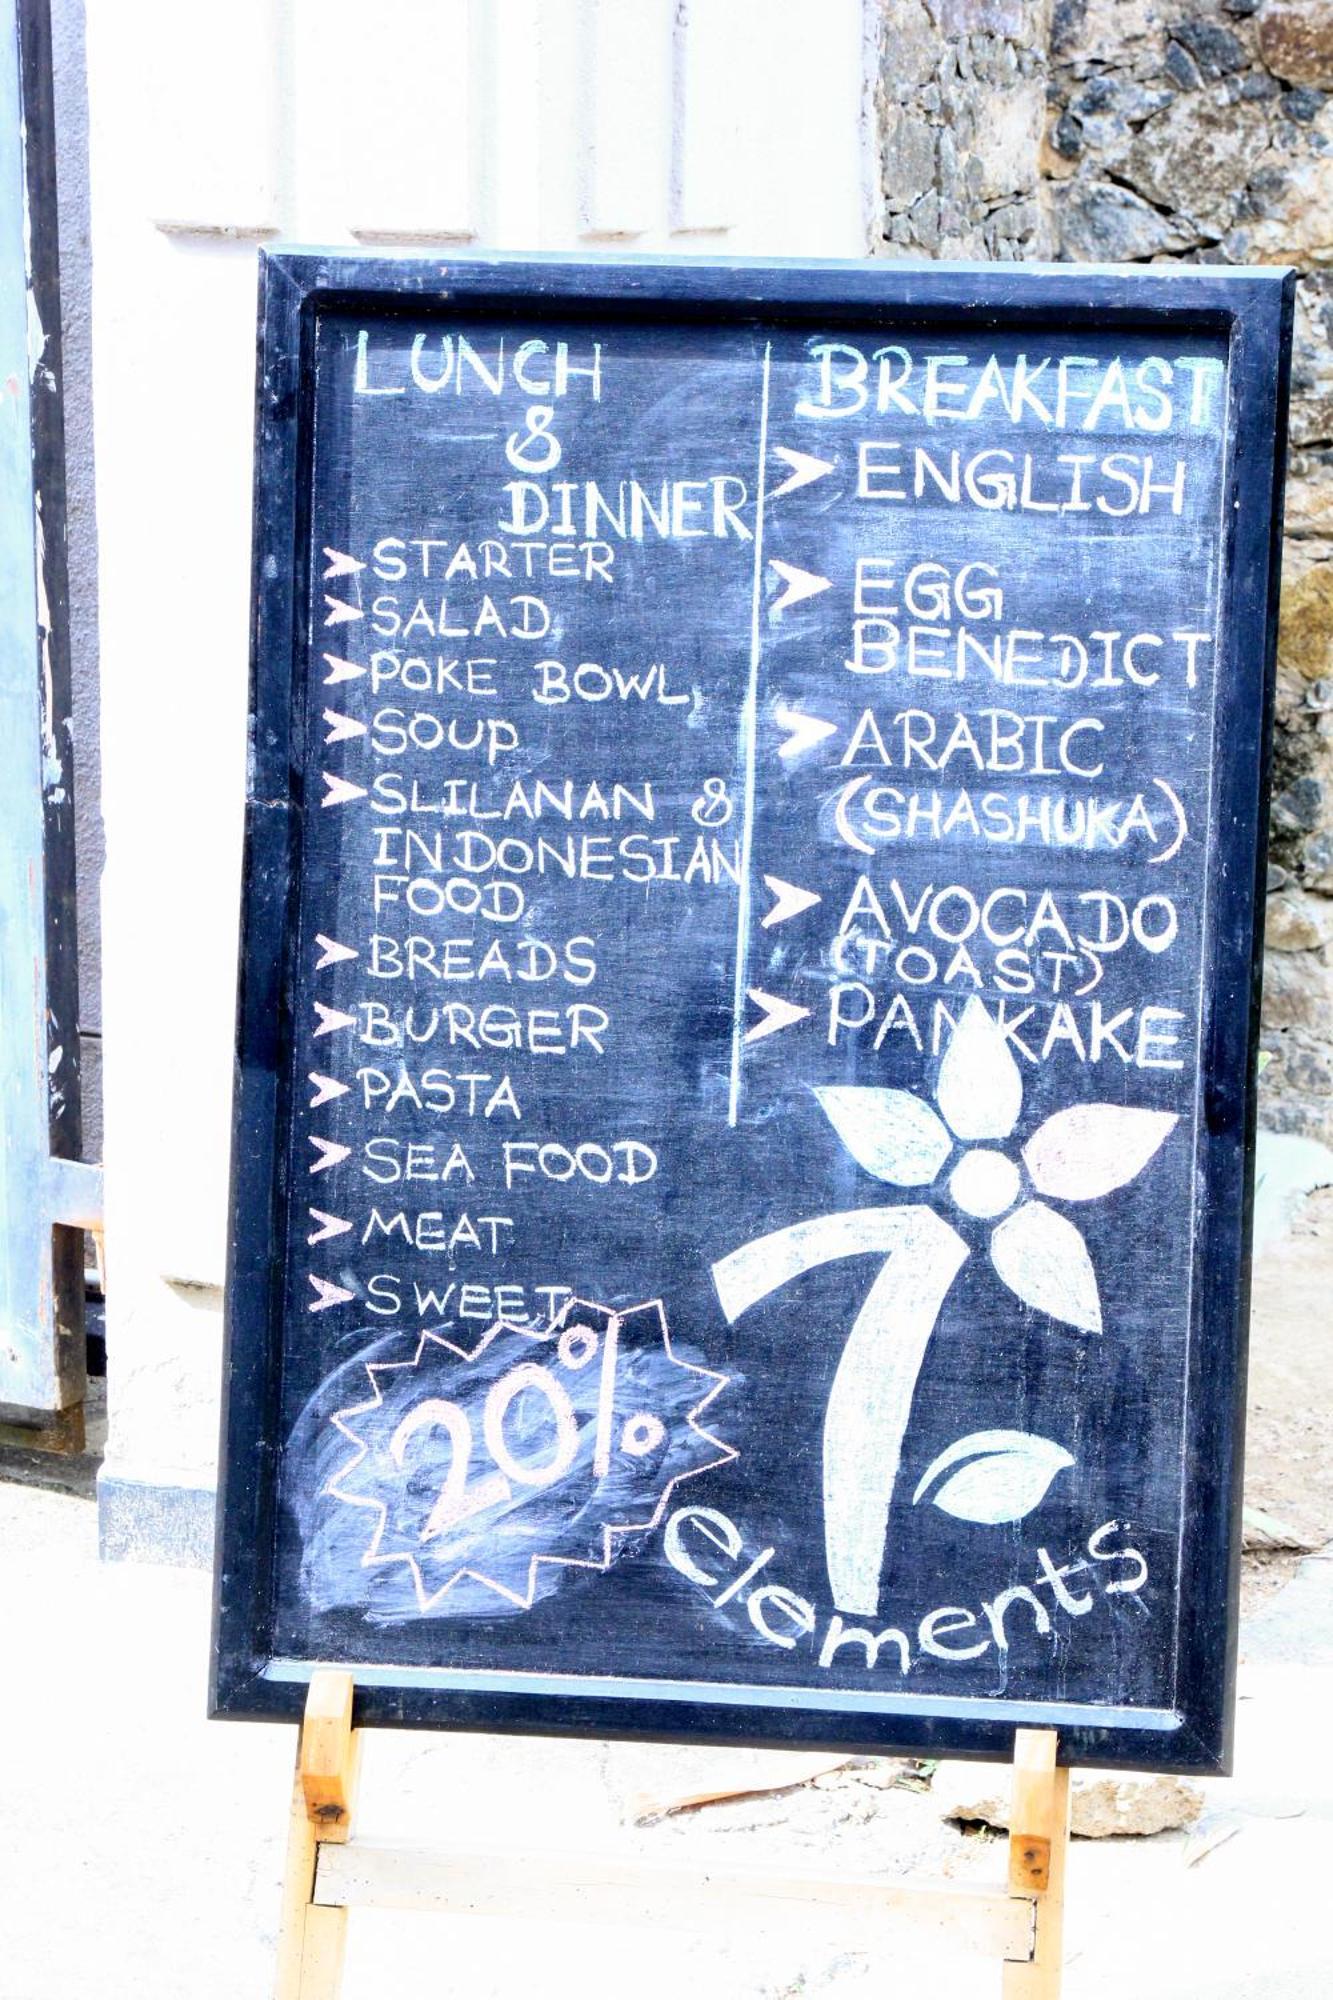 LUNCH
&
DINNER
STARTER
SALAD
POKE BOWL
SOUP
SLILANAN &
INDONESIAN
FOOD
BREADS
BURGER
PASTA
SEA FOOD
MEAT
SWEET
20%
BREAKFAST
ENGLISH
EGG
BENEDICT
ARABIC
(SHASHUKA)
AVOCADO
(TOAST)
PANKAKE
7
elements